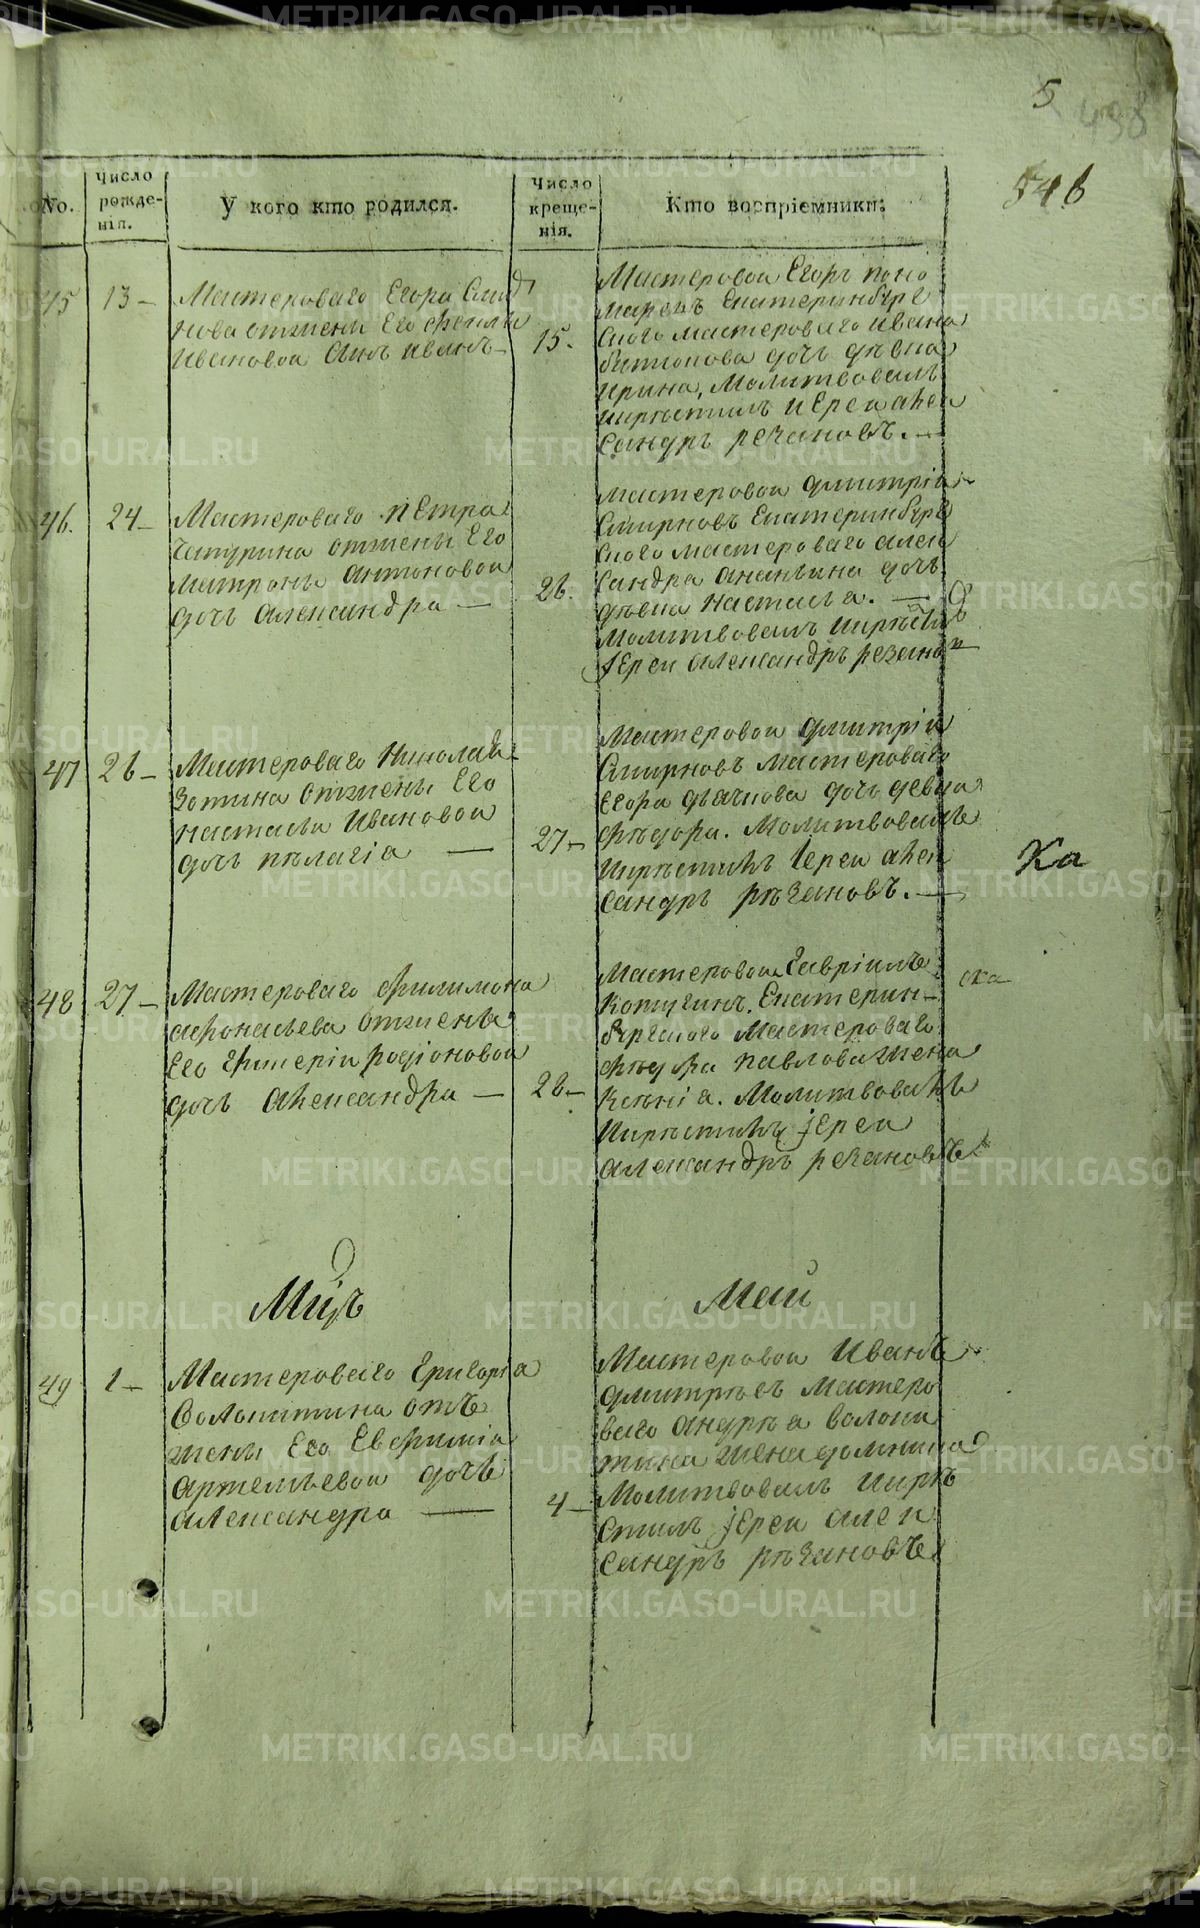 5
498
546
No.
Число рожде-нія.
У кого кто родился.
Число креще-нія.
Кто воспріемники:
45
13 —
Мастероваго Егора
нова отжены Его
Ивановой Сынъ иванъ —
15.
Мастеровои Егоръ поно
маревъ Екатеринбург
скаго мастероваго ивана
дочь дѣвка
ирина, Молитвовалъ
икрѣстилъ иЕреи алек
сандръ резановъ. —
46.
24 —
Мастероваго пЕтра
Чатурина отжены Его
Матроны антоновои
дочь александра —
26.
мастеровои дмитріи
Смирновъ Екатеринбург
скаго мастероваго алек
сандра ананьина дочь
дѣвка настасья. —
Молитвовалъ икрѣстилъ
іЕреи александръ резановъ
47
26 —
Мастероваго Николая
Зотина отжены Его
настасьи Ивановои
дочь пѣлагіа —
27 —
Мастеровои дмитріи
Смирновъ мастероваго
Егора дьячкова дочь девка
фѣдора. Молитвовалъ
икрѣстилъ іереи алек
сандръ рѣзановъ. —
Ка
48
27 —
Мастероваго филимона
афонасьева отжены
Его гликеріи родіоновои
дочь александра —
28 —
Мастеровои гавріилъ
Котугинъ. Екатерин-
бургскаго мастероваго
фѣдора павлова жена
Ксѣніа. Молитвовалъ
икрѣстилъ іереи
александръ резановъ
ска
Мцъ
Маи
49
1 —
Мастероваго григорья
Солопитина отъ
жены Его Евфиміи
артемьевои дочь
александра —
4 —
Мастеровои Иванъ
дмитрѣевъ мастеро
ваго андрѣа
жена домника
Молитвовалъ икрѣ
стилъ іереи алек
сандръ рѣзановъ
METRIKI.GASO-URAL.RU